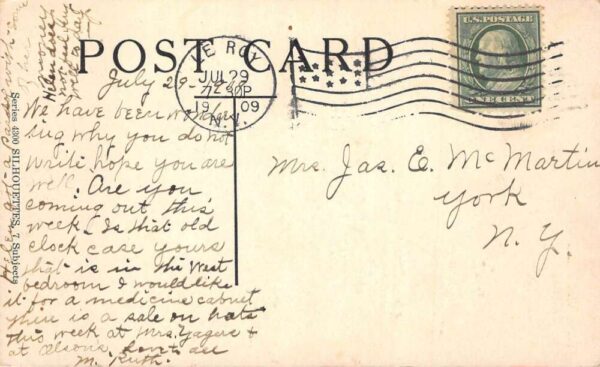 POST CARD
LE ROY
JUL 29
7 30P
1909
N.Y.
U.S. POSTAGE
ONE CENT
Mrs. Jas. E. McMartin
York
N. Y.
July 29-
We have been wonder
ing why you do not
write hope you are
well. Are you
coming out this
week. Is that old
clock case yours
that is in the West
bedroom I would like
it for a medicine cabnet
thir is a sale on hats
this week at Mrs. Yagers +
at Olsons.
M. Ruth.
Helen got a card with
Series 4300 SILHOUETTES, 7 Subjects